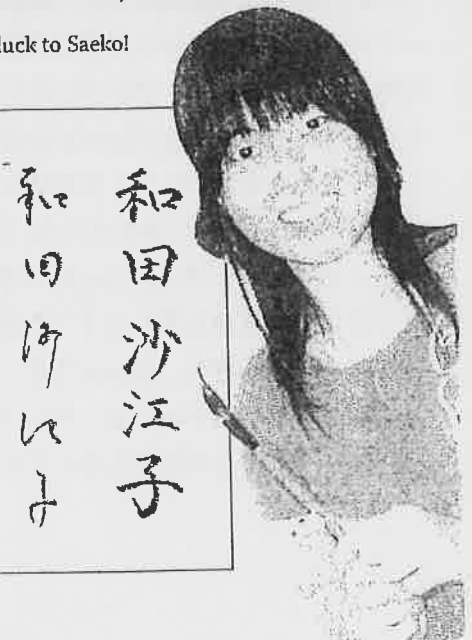 luck to Saeko!
和田沙江子
和田沙江子